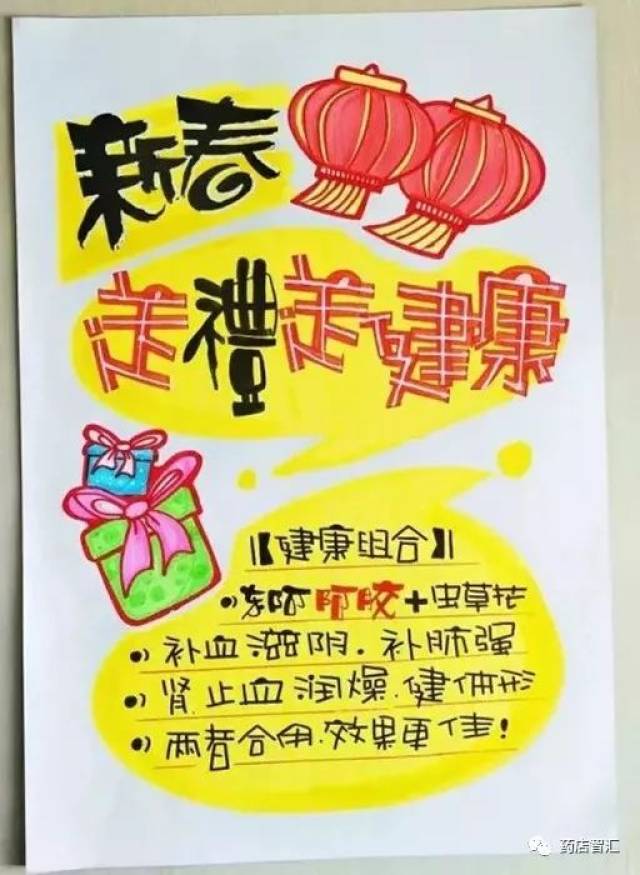 新春
送禮送健康
【健康组合】
•东阿阿胶+虫草花
•)补血滋阴.补肺强
•)肾.止血润燥.健体形
•)两者合用.效果更佳!
药店智汇